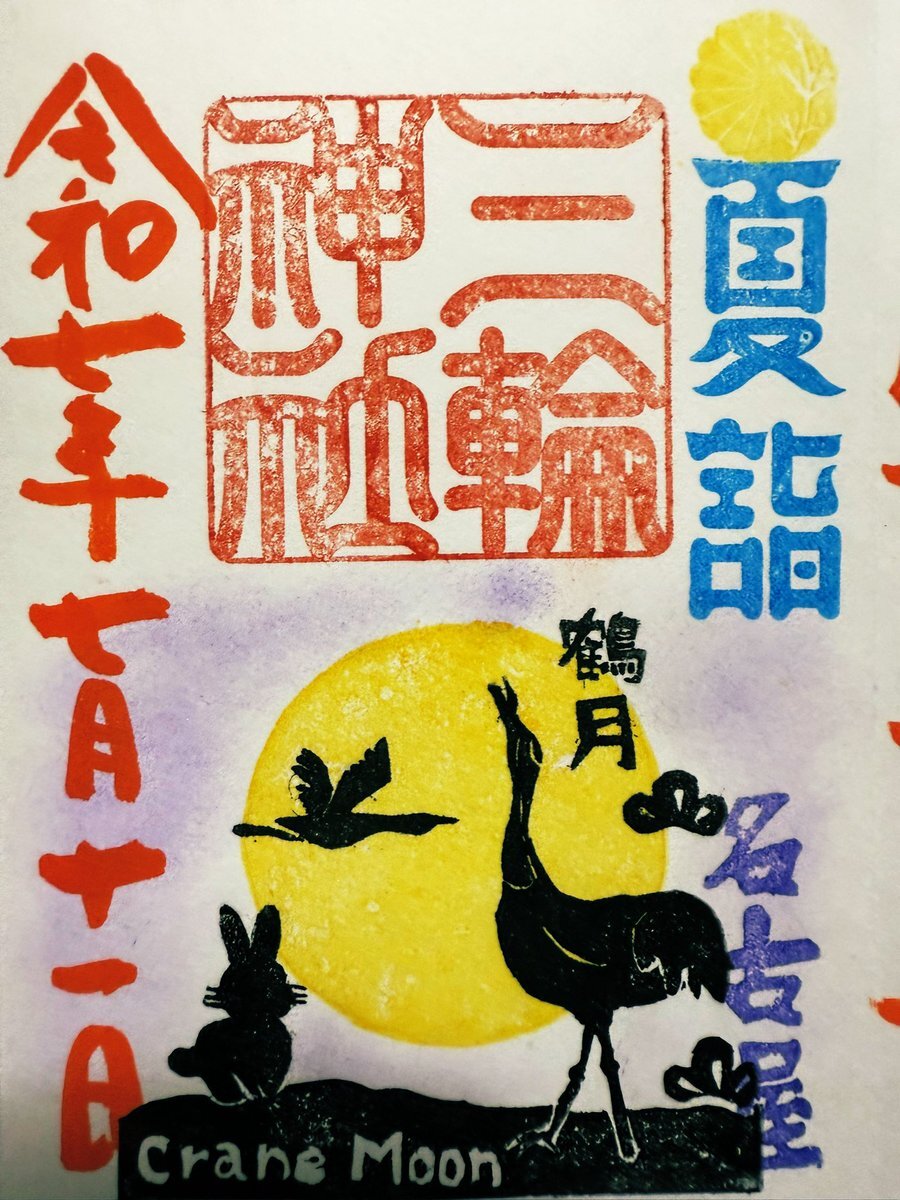 夏詣
三輪
神社
鶴月
名古屋
Crane Moon
令和七年七月十一日